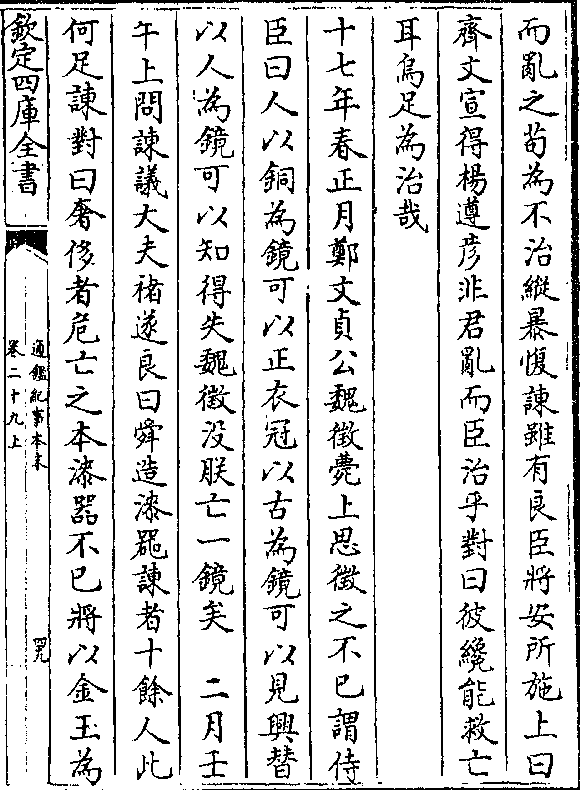 而亂之苟為不治縱暴愎諫雖有良臣將安所施上曰
齊文宣得楊遵彦非君亂而臣治乎對曰彼纔能救亡
耳烏足為治哉
十七年春正月鄭文貞公魏徵薨上思徵之不已謂侍
臣曰人以銅為鏡可以正衣冠以古為鏡可以見興替
以人為鏡可以知得失魏徵没朕亡一鏡矣　二月壬
午上問諫議大夫褚遂良曰舜造漆器諫者十餘人此
何足諫對曰奢侈者危亡之本漆器不已將以金玉為
欽定四庫全書
通鑑紀事本末
卷二十九上
四九